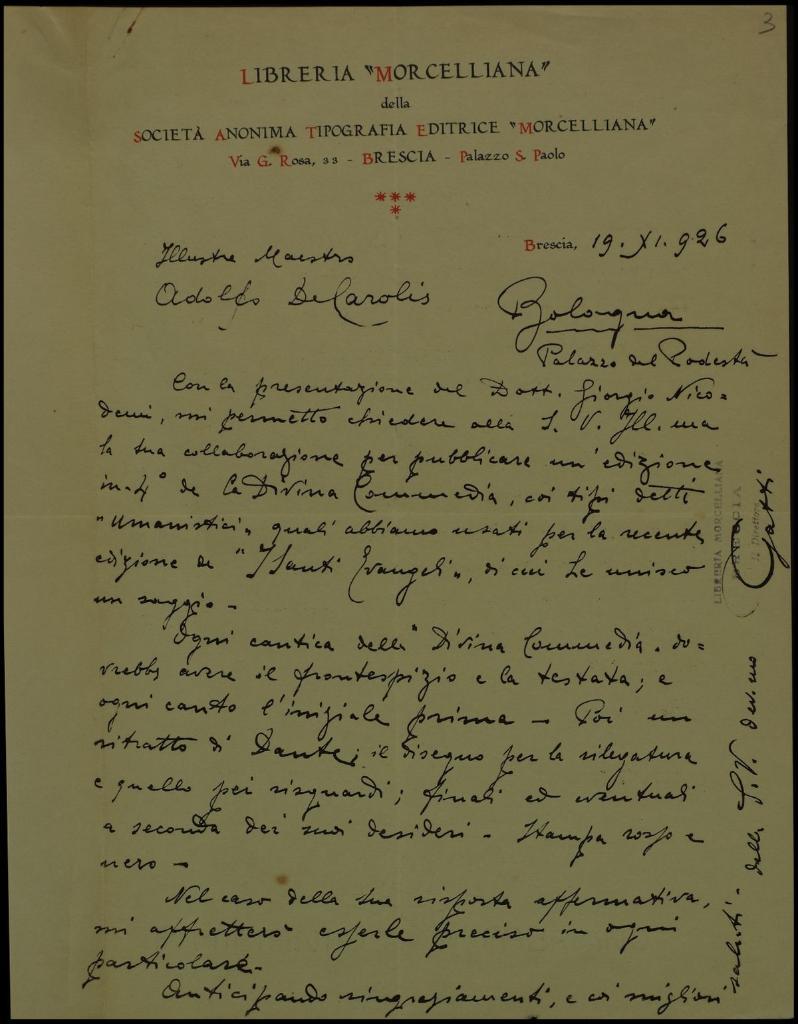 3
LIBRERIA "MORCELLIANA"
della
SOCIETÀ ANONIMA TIPOGRAFIA EDITRICE "MORCELLIANA"
Via G. Rosa, 33 - BRESCIA - Palazzo S. Paolo
Brescia, 19. XI. 926
Illustre Maestro
Adolfo De Carolis
Bologna
Palazzo del Podestà
Con la presentazione del Dott. Giorgio Nico=
demi, mi permetto chiedere alla S. V. Ill.ma
la sua collaborazione per pubblicare un'edizione
in-4° de La Divina Commedia, coi tipi detti
"Umanistici" quali abbiamo usati per la recente
edizione de "I Santi Evangeli", di cui Le unisco
un saggio -
Ogni cantica della "Divina Commedia" do=
vrebbe avere il frontespizio e la testata; e
ogni canto l'iniziale prima - Poi un
ritratto di Dante; il disegno per la rilegatura
e quello pei risguardi; finali ed eventuali
a seconda dei suoi desideri - Stampa rosso e
nero -
Nel caso della Sua risposta affermativa,
mi affretterò esserle preciso in ogni
particolare.
Anticipando ringraziamenti, e coi migliori
saluti - della S. V. dev.mo
LIBRERIA MORCELLIANA
BRESCIA
Il Direttore
Gatti